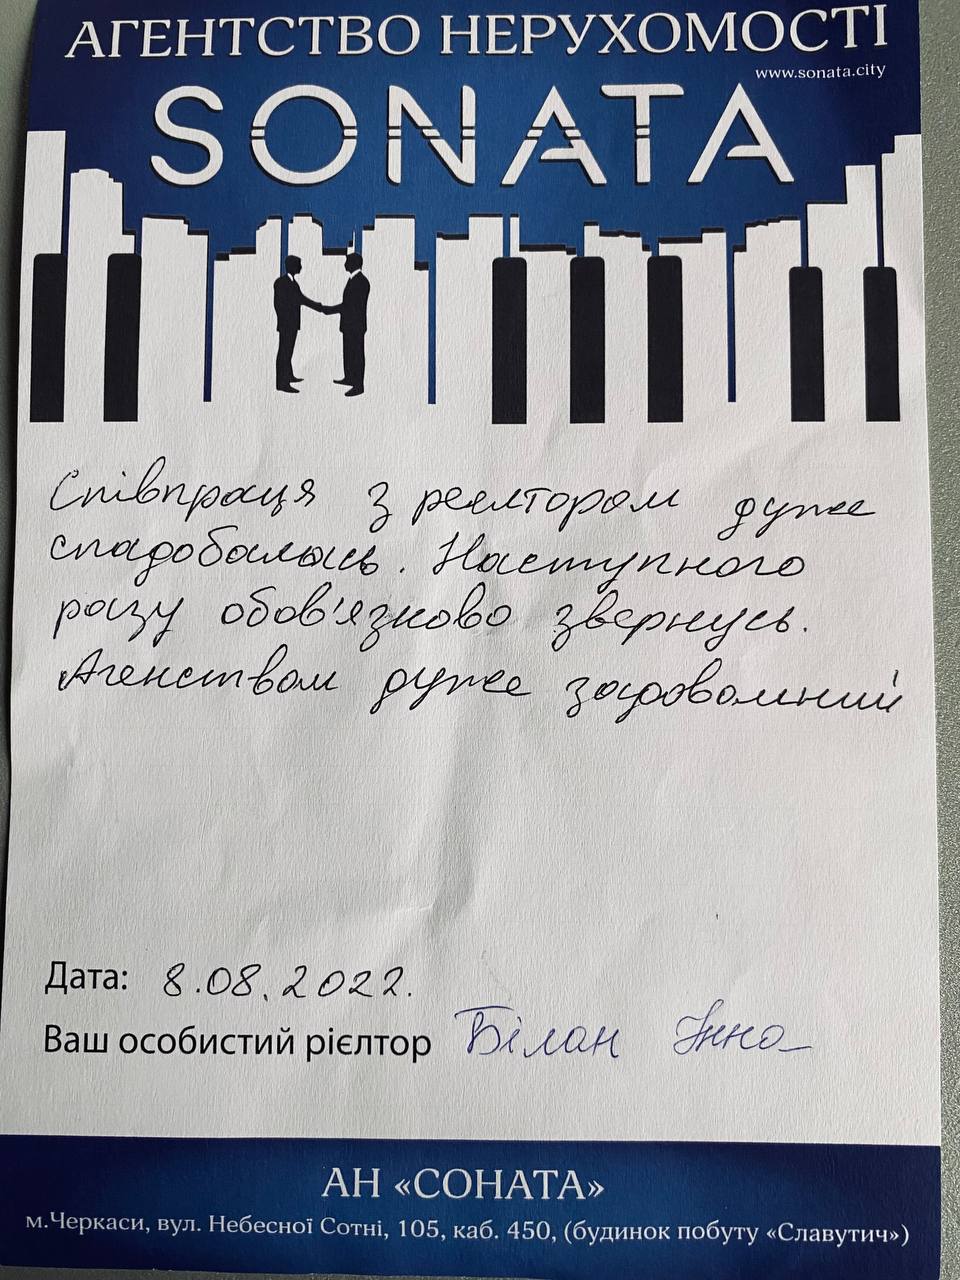 АГЕНТСТВО НЕРУХОМОСТІ
www.sonata.city
SONATA
Співпраця з реєлтором дуже
сподобалась. Наступного
разу обов'язково звернусь.
Агенством дуже задоволний
Дата: 8.08.2022.
Ваш особистий рієлтор Білан Інна
АН «СОНАТА»
м.Черкаси, вул. Небесної Сотні, 105, каб. 450, (будинок побуту «Славутич»)